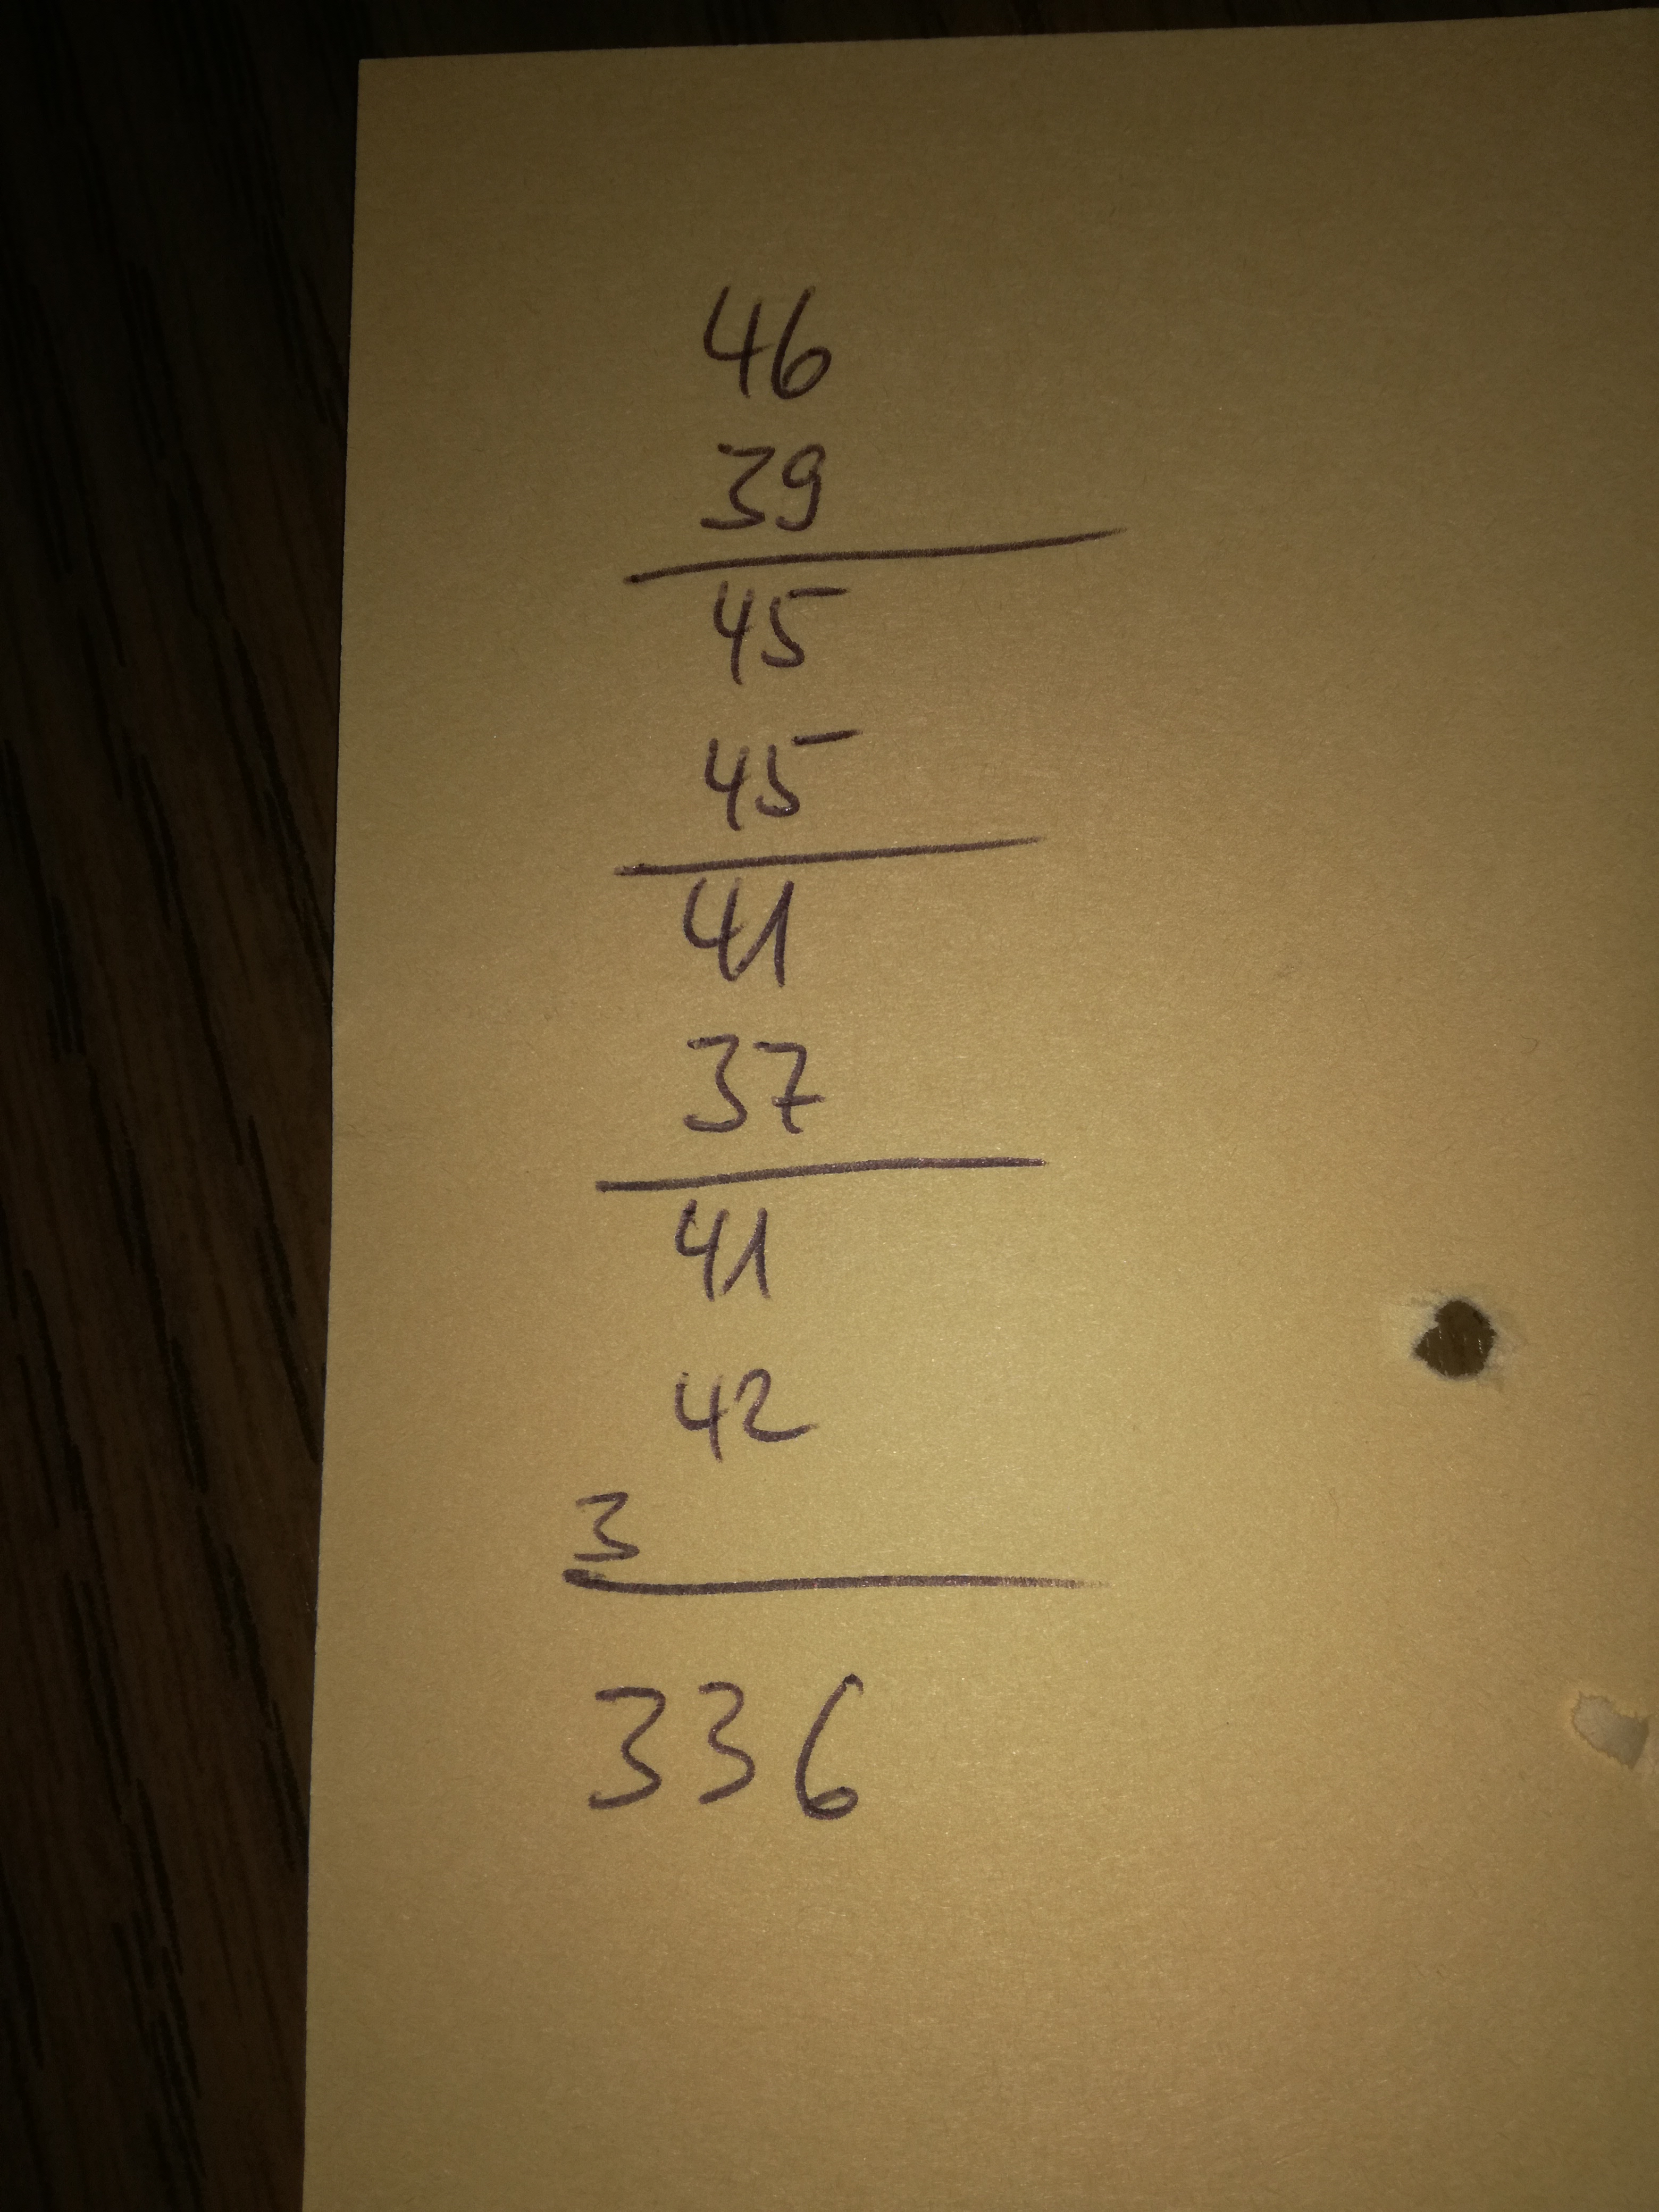 46
39
45
45
41
37
41
42
3
336